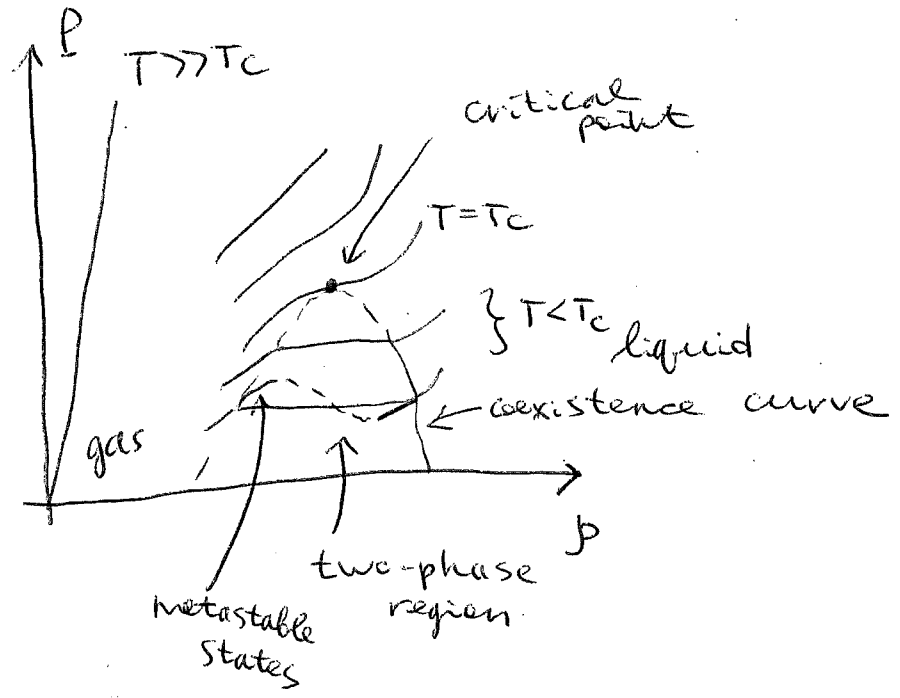 P
T>>Tc
critical
point
T=Tc
} T<Tc
liquid
coexistence curve
gas
ρ
two-phase
region.
metastable
states